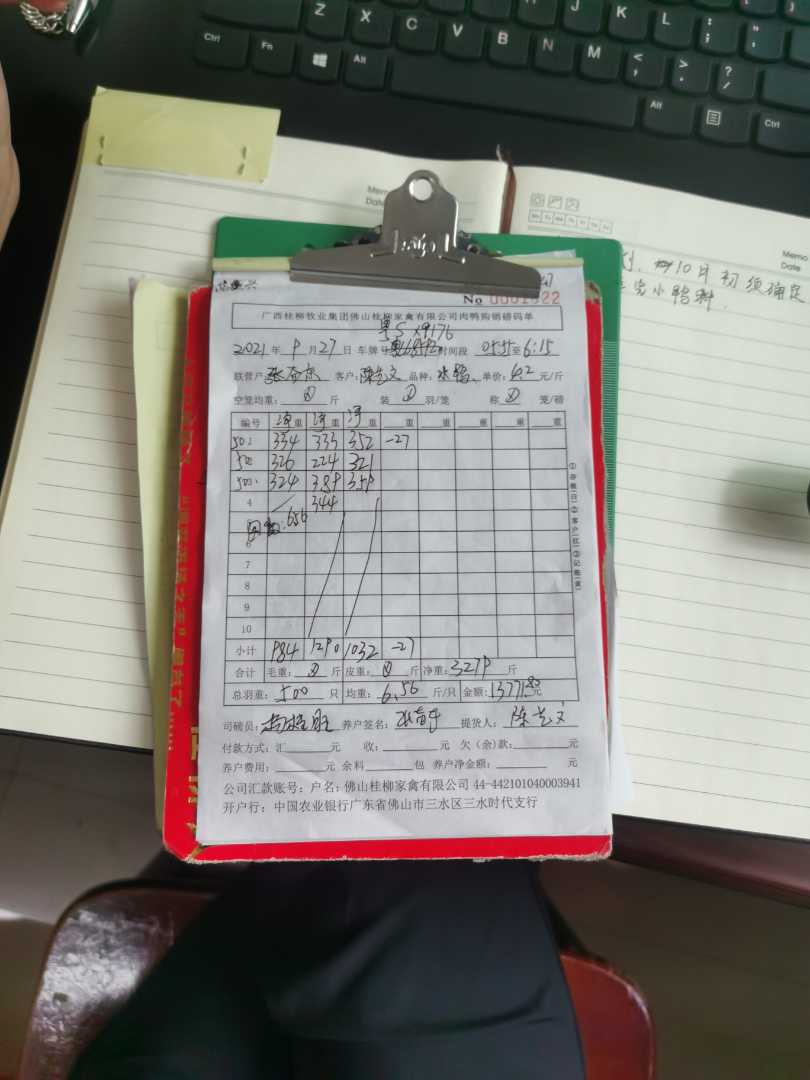 Z X C V B N M < > ?
Ctrl Fn Alt Alt Ctrl
J K L
Memo
Date
Memo
Date
10月初须确定
小鸭料.
No 0001322
广西桂柳牧业集团佛山桂柳家禽有限公司肉鸭购销磅码单
粤S X9176
2021年 9月27日 车牌号: 时间段 05:55至6:15
联营户: 客户: 陈志文 品种: 水鸭 单价: 4.2元/斤
空笼均重: Ø 斤 装 Ø 羽/笼 称 Ø 笼/磅
编号 净重 净重 净重 重 重 重 重 重
334 333 352 -27
326 224 321
324 389 359
4 344
656
6
7
8
9
10
小计 984 1290 1032 -27
合计 毛重: Ø 斤 皮重: Ø 斤 净重: 3279 斤
总羽重: 500 只 均重: 6.56 斤/只 金额: 13771.80元
司磅员: 养户签名: 提货人: 陈志文
付款方式: 汇 元 收: 元 欠(余)款: 元
养户费用: 元 余料 包 养户净金额: 元
公司汇款账号: 户名: 佛山桂柳家禽有限公司 44-442101040003941
开户行: 中国农业银行广东省佛山市三水区三水时代支行
①存根(白)②客户(红)③记账(黄)